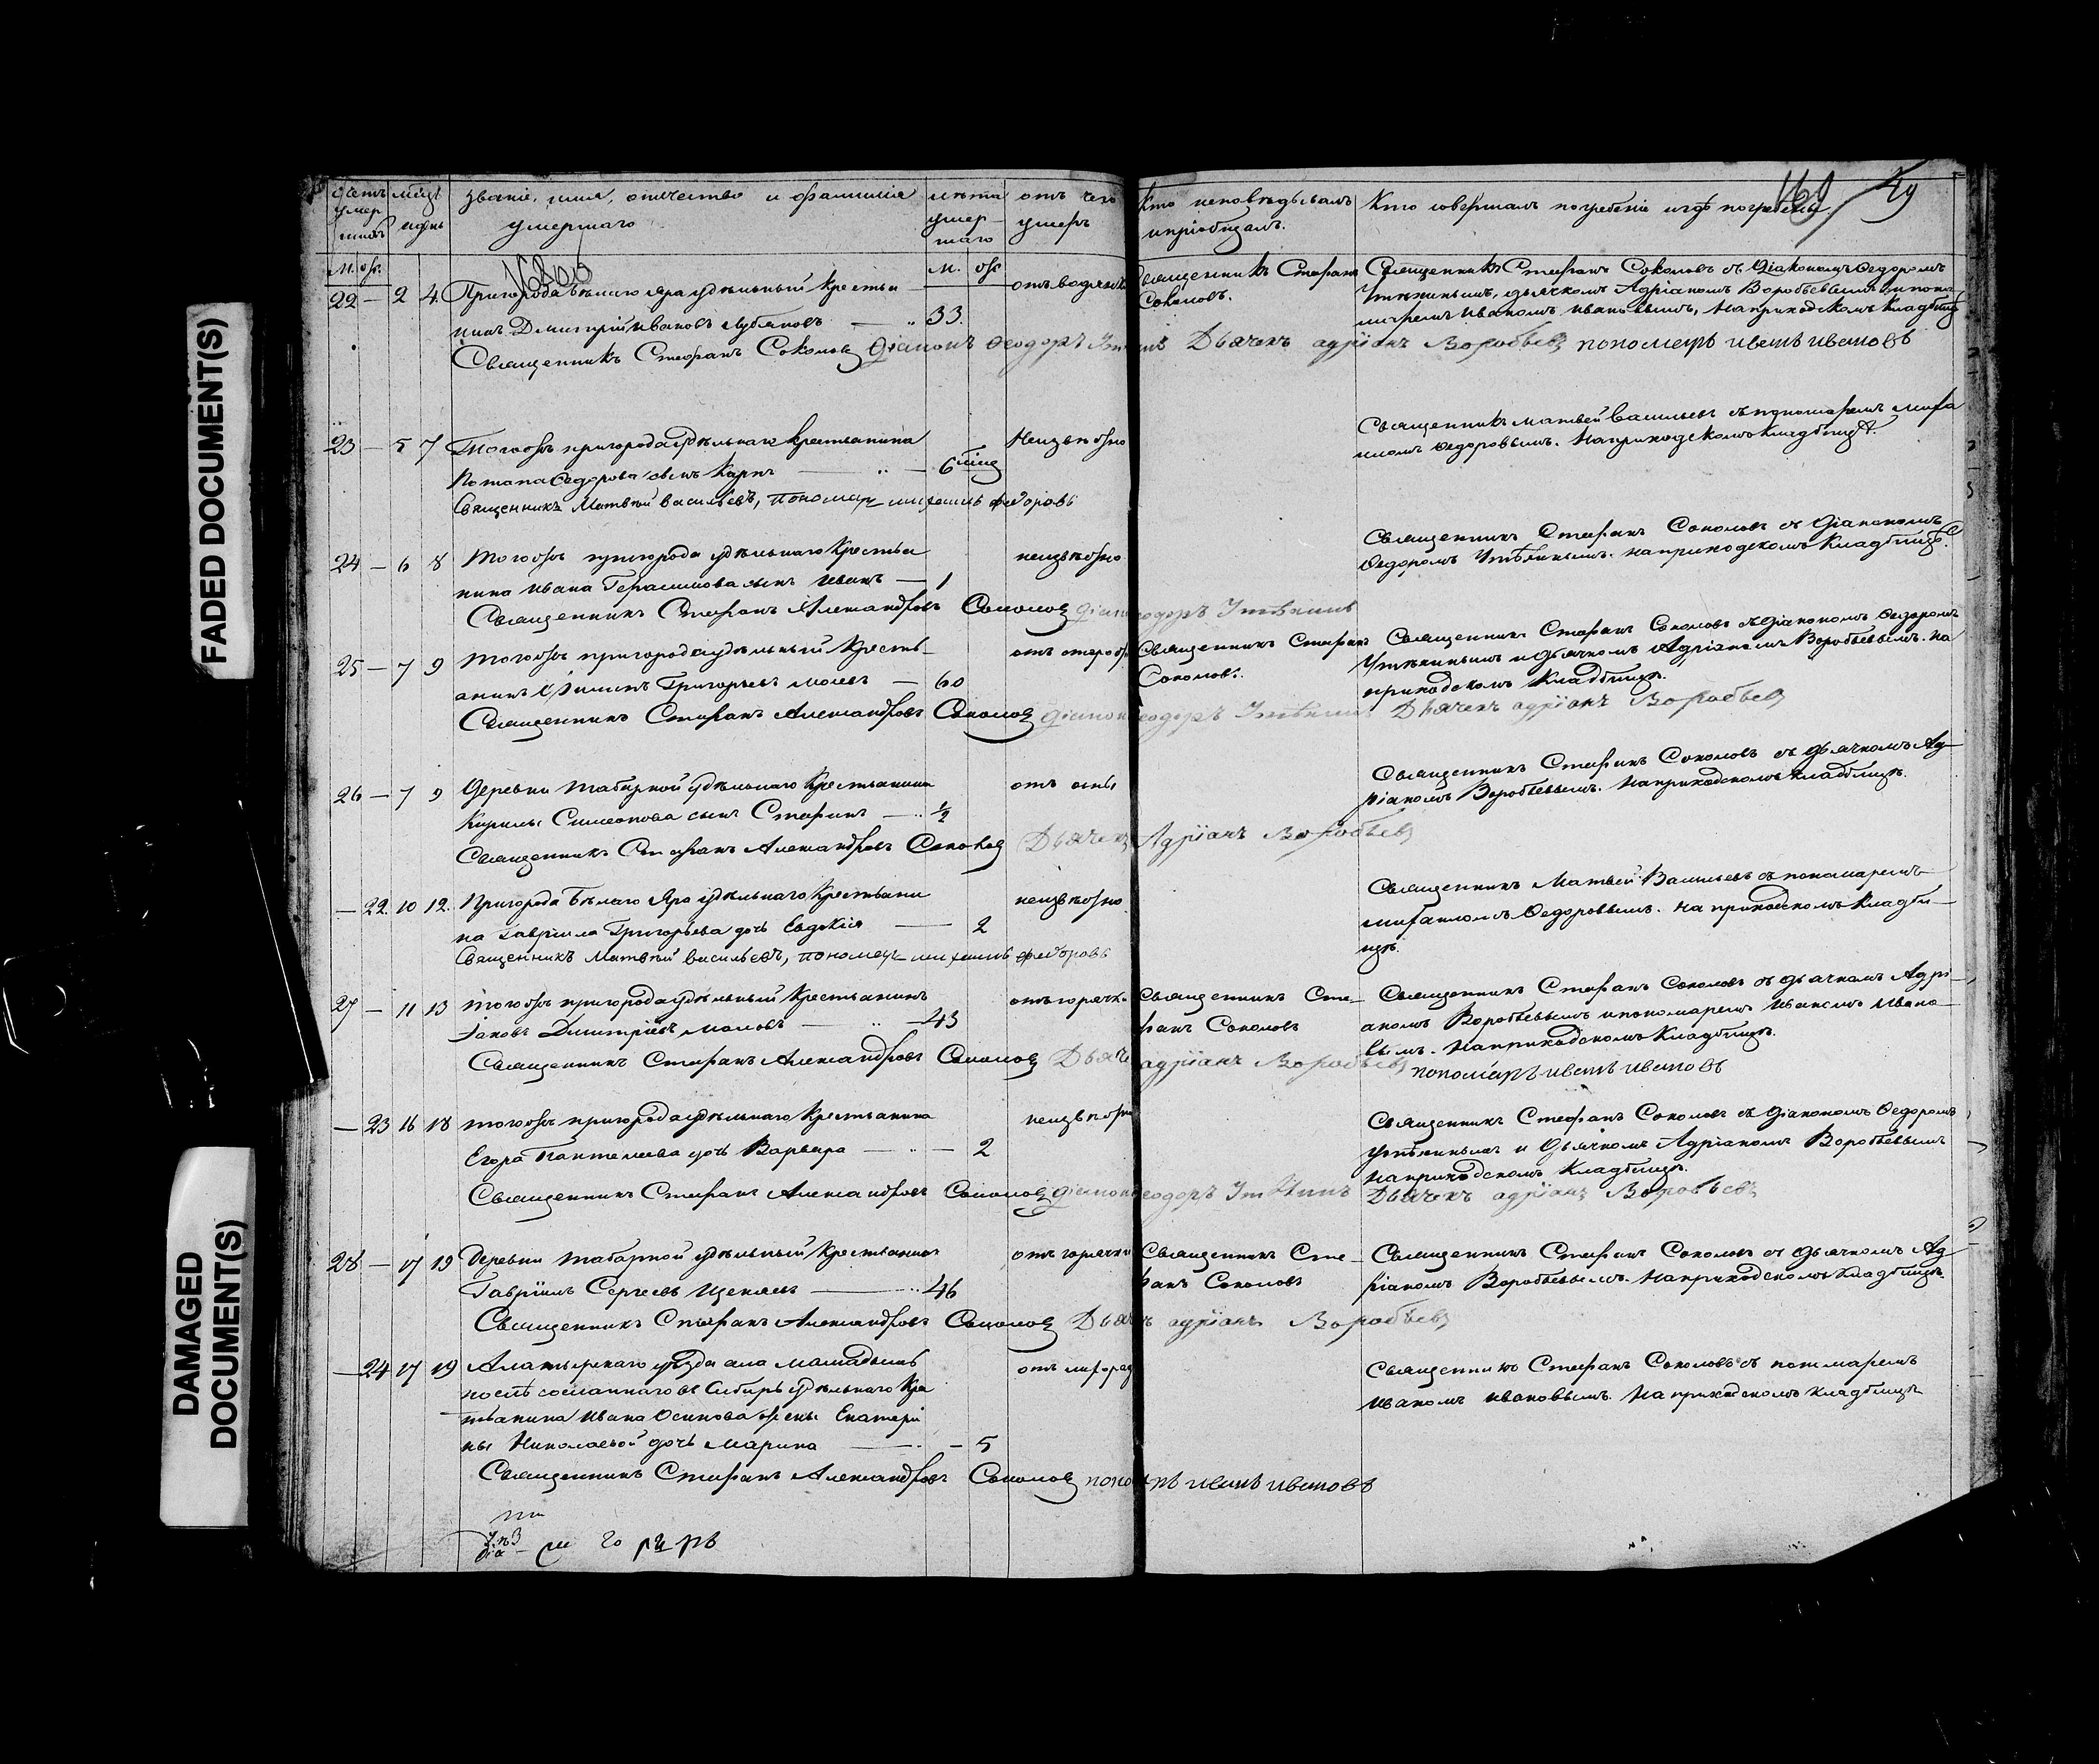 FADED DOCUMENT(S)
DAMAGED DOCUMENT(S)
Счетъ умершихъ
мѣсяцъ и день
званіе, имя, отчество и фамилія умершаго
лѣта умершаго
отъ чего умеръ
Кто исповѣдывалъ и пріобщалъ.
Кто совершалъ погребеніе и гдѣ погребены.
49
М. ж.
М. ж.
22 — 2 4 Пригорода Бѣлаго Яра удѣльный крестья
нинъ Димитрій Ивановъ — 33.
отъ водяной
Священникъ Стефанъ
Соколовъ.
Священникъ Стефанъ Соколовъ съ Діакономъ Ѳедоромъ
Утѣхинымъ, дьячкомъ Адріаномъ Воробьевымъ и поно
маремъ Иваномъ Ивановымъ, на приходскомъ кладбищѣ
Священникъ Стефанъ Соколовъ Діаконъ Ѳеодоръ Дьячекъ Адріанъ Воробьевъ пономарь Иванъ Ивановъ
23 — 5 7 Тогожъ пригорода удѣльнаго крестьянина
Потапа Ѳедорова сынъ Карпъ — 6 мѣц
Неизвѣстно
Священникъ Матвей Васильевъ съ пономаремъ Миха
иломъ Ѳедоровымъ. На приходскомъ кладбищѣ.
Священникъ Матвѣй Васильевъ, пономарь Михаилъ Федоровъ
24 — 6 8 Тогожъ пригорода удѣльнаго крестья
нина Ивана Герасимова сынъ Иванъ — 1
неизвѣстно
Священникъ Стефанъ Соколовъ съ Діакономъ
Ѳедоромъ Утѣхинымъ. на приходскомъ кладбищѣ.
Священникъ Стефанъ Александровъ Соколовъ Діаконъ Ѳеодоръ Утѣхинъ
25 — 7 9 Тогожъ пригорода удѣльный кресть
янинъ Филипъ Григорьевъ — 60
Священникъ Стефанъ
Соколовъ.
Священникъ Стефанъ Соколовъ съ Діакономъ Ѳедоромъ
Утѣхинымъ и дьячкомъ Адріаномъ Воробьевымъ. на
приходскомъ кладбищѣ.
Священникъ Стефанъ Александровъ Соколовъ Діаконъ Ѳеодоръ Утѣхинъ Дьячекъ Адріанъ Воробьевъ
26 — 7 9 Деревни удѣльнаго крестьянина
Кирилы Симеонова сынъ Стефанъ — ½
отъ оспы
Священникъ Стефанъ Соколовъ съ дьячкомъ Ад
ріаномъ Воробьевымъ. На приходскомъ кладбищѣ.
Священникъ Стефанъ Александровъ Соколовъ Дьячекъ Адріанъ Воробьевъ
— 22. 10 12. Пригорода Бѣлаго Яра удѣльнаго крестьяни
на Гавріила Григорьева дочь Евдокія — 2
неизвѣстно
Священникъ Матвей Васильевъ съ пономаремъ
Михаиломъ Ѳедоровымъ. На приходскомъ кладби
щѣ.
Священникъ Матвѣй Васильевъ, пономарь Михаилъ Федоровъ
27 — 11 13 Тогожъ пригорода удѣльный крестьянинъ
Іаковъ Димитріевъ — 43
отъ горячки
Священникъ Сте
фанъ Соколовъ
Священникъ Стефанъ Соколовъ съ дьячкомъ Адрі
аномъ Воробьевымъ и пономаремъ Иваномъ Ивано
вымъ. На приходскомъ кладбищѣ.
Священникъ Стефанъ Александровъ Соколовъ Дьячекъ Адріанъ Воробьевъ пономарь Иванъ Ивановъ
— 23 16 18 Тогожъ пригорода удѣльнаго крестьянина
Егора Пантелеева дочь Варвара — 2
неизвѣстно
Священникъ Стефанъ Соколовъ съ Діакономъ Ѳедоромъ
Утѣхинымъ и дьячкомъ Адріаномъ Воробьевымъ
на приходскомъ кладбищѣ.
Священникъ Стефанъ Александровъ Соколовъ Діаконъ Ѳеодоръ Утѣхинъ Дьячекъ Адріанъ Воробьевъ
28 — 17 19 Деревни удѣльный крестьянинъ
Гавріилъ Сергеевъ — 46
отъ горячки
Священникъ Сте
фанъ Соколовъ
Священникъ Стефанъ Соколовъ съ дьячкомъ Ад
ріаномъ Воробьевымъ. На приходскомъ кладбищѣ.
Священникъ Стефанъ Александровъ Соколовъ Дьячекъ Адріанъ Воробьевъ
— 24 17 19 Алатырскаго уѣзда
сосланнаго въ Сибирь удѣльнаго кре
стьянина Ивана Осипова жены Екатери
ны Николаевой дочь Марина — 5
Священникъ Стефанъ Соколовъ съ пономаремъ
Иваномъ Ивановымъ. На приходскомъ кладбищѣ
Священникъ Стефанъ Александровъ Соколовъ пономарь Иванъ Ивановъ